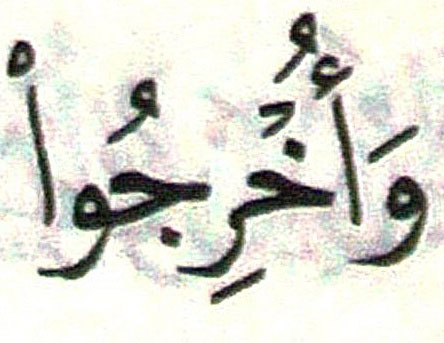 وَأُخْرِجُواْ